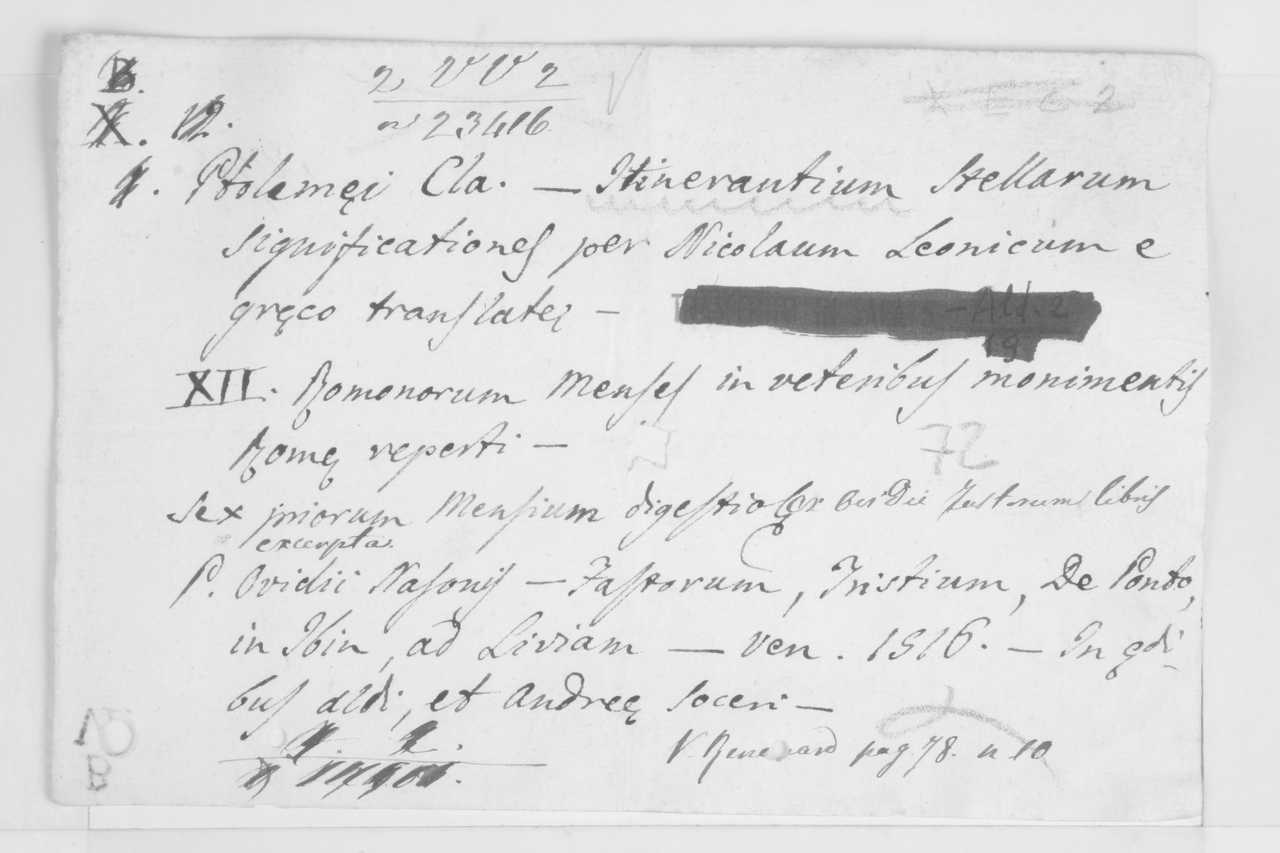 B.
2 V V 2
X E G 2
X. 12.
n° 23416
1. Ptolemęi Cla. — Itinerantium Stellarum
significationes per Nicolaum Leonicum e
gręco translatę —
Ald. 2
19
XII. Romonorum Menses in veteribus monimentis
Romę reperti —
72
Sex priorum Mensium digestio ex Ovidii Fastorum libris
excerpta.
P. Ovidii Nasonis — Fastorum, Tristium, De Ponto,
in Ibin, ad Liviam — Ven. 1516. — In ędi-
bus aldi, et Andreę Soceri —
V. Renouard pag 78. n 10